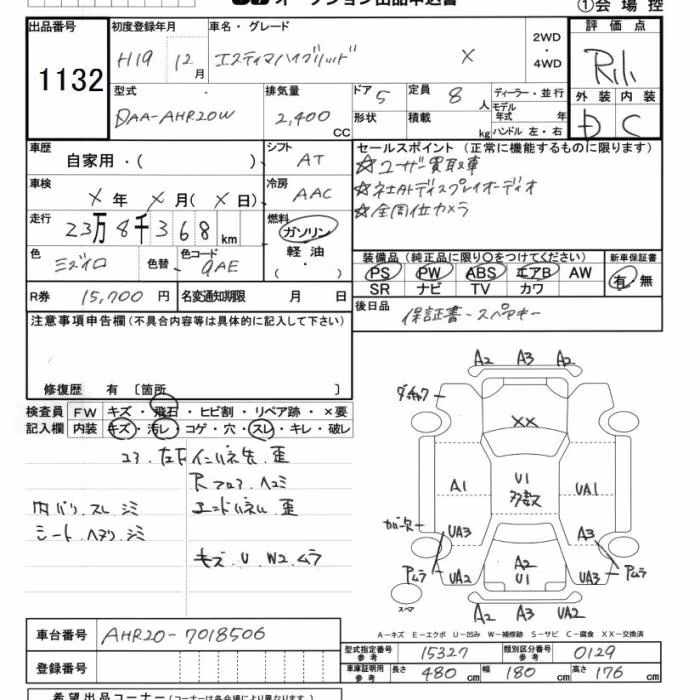 オークション出品申込書
①会場控
出品番号
1132
初度登録年月
H19年 12月
車名・グレード
エスティマハイブリッド X
2WD
・
4WD
評価点
R
外装 内装
D C
型式
DAA-AHR20W
排気量
2,400 CC
ドア 5
定員 8人
形状
積載 kg
ディーラー・並行
モデル年式 年式
ハンドル 左・右
車歴
自家用・( )
シフト
AT
車検
X年 X月(X日)
冷房
AAC
走行
23万8千368km
燃料
ガソリン
軽油
( ・ )
色
ミズイロ
色替
色コード
9AE
R券 15,700円
名変通知期限 月 日
セールスポイント(正常に機能するものに限ります)
☆ユーザー買取車
☆社外ディスプレイオーディオ
☆全周位カメラ
装備品(純正品に限り○をつけてください)
PS PW ABS エアB AW
SR ナビ TV カワ
新車保証書
有・無
後日品
保証書・スペアキー
注意事項申告欄(不具合内容等は具体的に記入して下さい)
修復歴 有 〔箇所 〕
検査員
記入欄
FW キズ・飛石・ヒビ割・リペア跡・×要
内装 キズ・汚レ・コゲ・穴・スレ・キレ・破レ
23.左下インパネ先.歪
R フロア ヘコミ
内バリ スレ シミ
エンドパネル.歪
シート.ヘタリ.シミ
キズ.U.W2.ムラ
A2 A3 A2
XX
A1
U1
多数
UA1
カバー
UA3
A3
A2
U1
アムラ
UA2
UA3
アムラ
スペア
A2 A3 UA2
A-キズ E-エクボ U-凹み W-補修跡 S-サビ C-腐食 XX-交換済
車台番号 AHR20-7018506
登録番号
型式指定番号 参考 15327
類別区分番号 参考 0129
車庫証明用 参考 長さ 480cm 幅 180cm 高さ 176cm
希望出品コーナー(コーナーは各会場により異なります。)